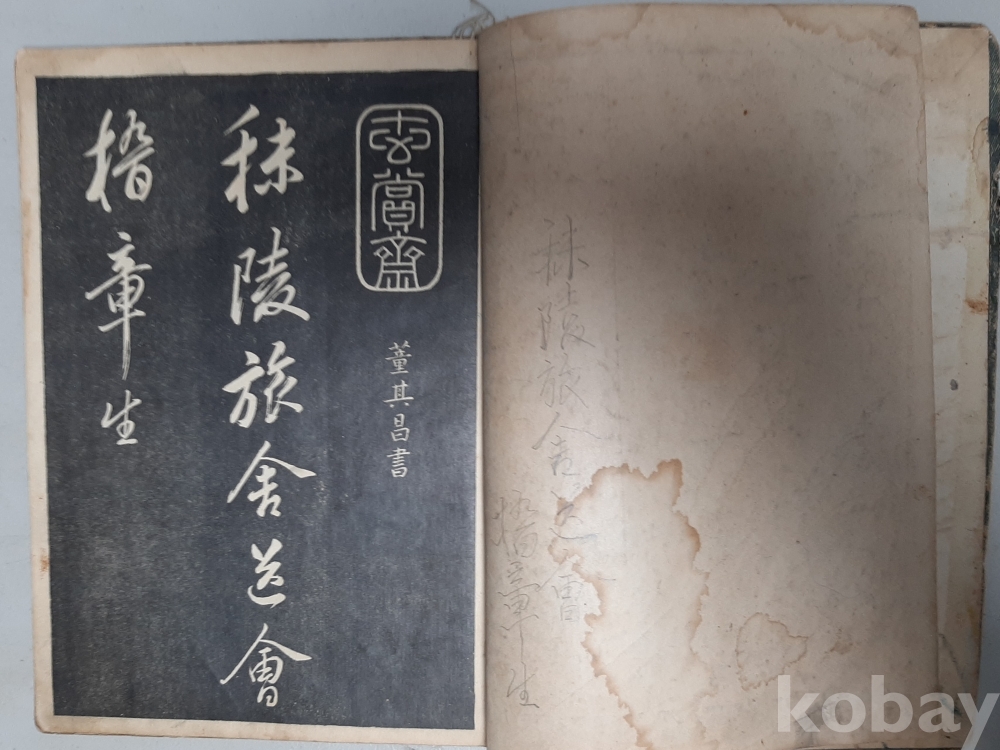 秣陵旅舍送會
稽章生
玄賞齋
董其昌書
秣陵旅舍送會
稽章生
kobay